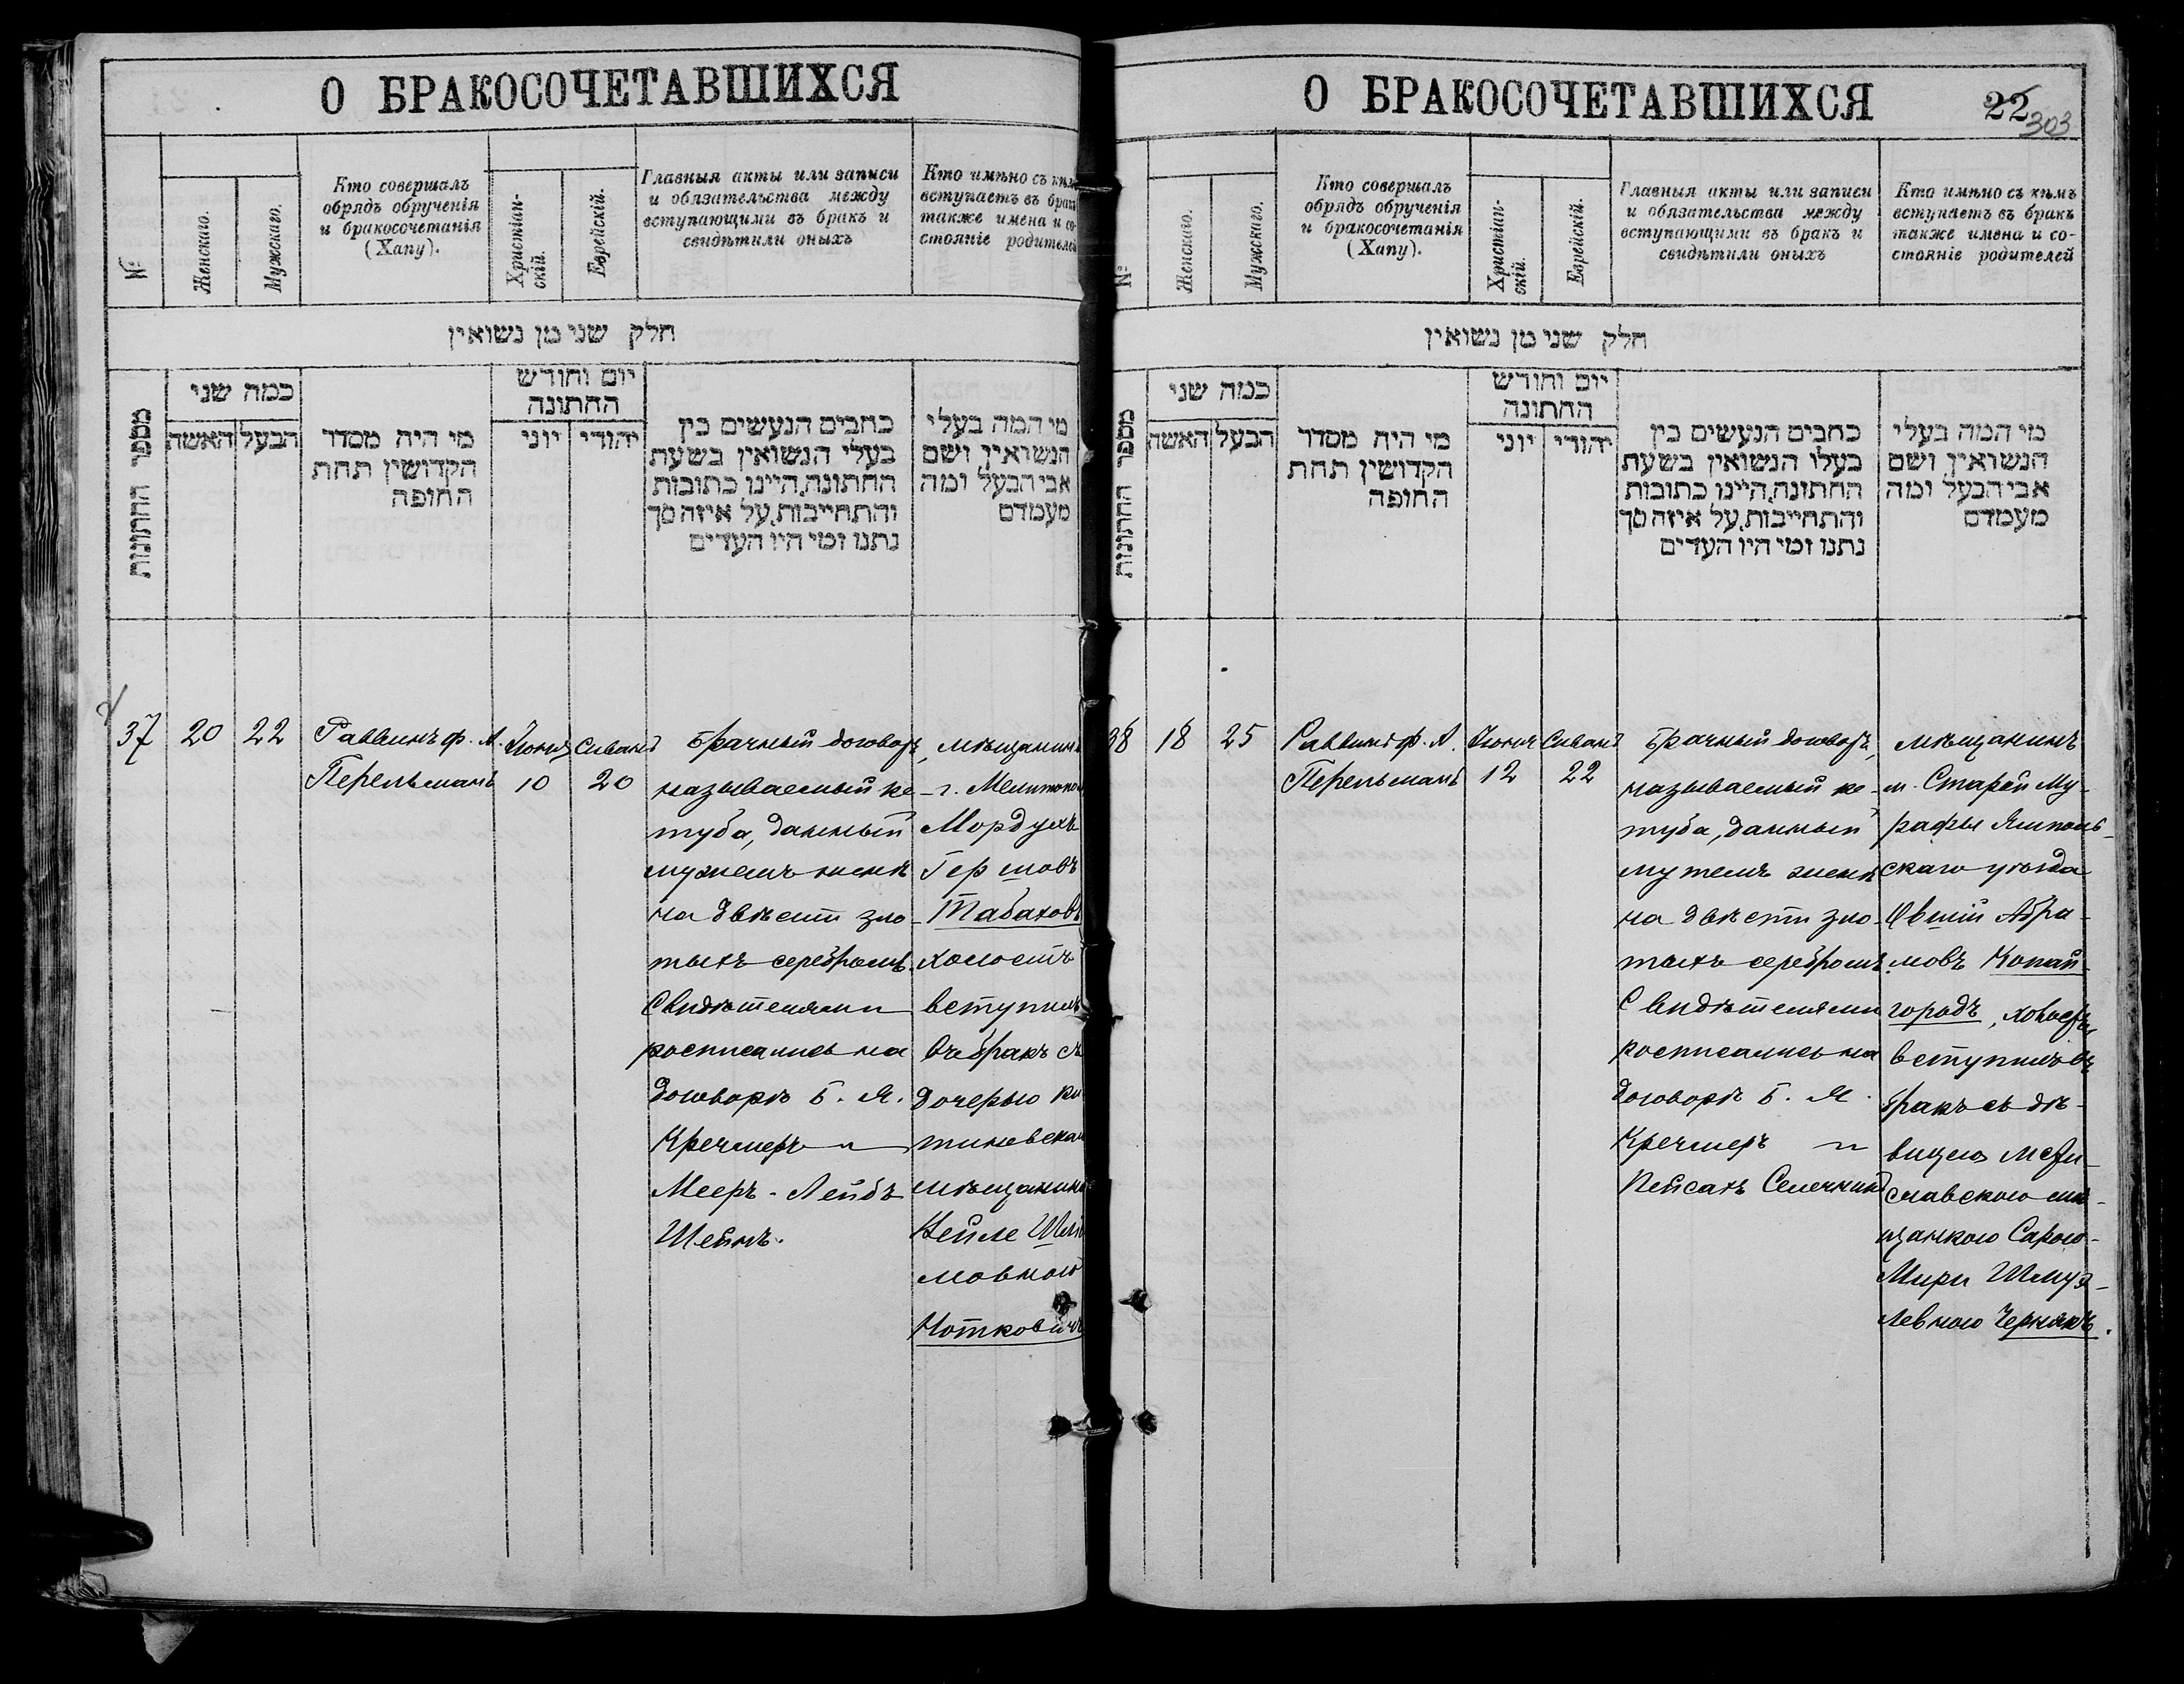 О БРАКОСОЧЕТАВШИХСЯ
№
Женскаго.
Мужскаго.
Кто совершалъ
обрядъ обрученія
и бракосочетанія
(Хапу).
Христіан-
скій.
Еврейскій.
Главныя акты или записи
и обязательства между
вступающими въ бракъ и
свидѣтили оныхъ
Кто имѣно съ кѣм
вступаетъ въ брак
также имена и со-
стояніе родителей
חלק שני מן נשואין
מספר החתונות
כמה שני
האשה
הבעל
מי היה מסדר
הקדושין תחת
החופה
יום וחודש
החתונה
יוני
יהודי
כתבים הנעשים בין
בעלי הנשואין בשעת
החתונה, היינו כתובות
והתחייבות, על איזה סך
נתנו ומי היו העדים
מי המה בעלי
הנשואין ושם
אבי הבעל ומה
מעמדם
37
20
22
Раввинъ ф. А.
Перельманъ
Іюня
10
Сивана
20
Брачный договоръ,
называемый ке-
туба, данный
мужемъ женѣ
на двѣсти зло-
тыхъ серебромъ.
Свидѣтелями
росписались на
договорѣ Б. Я.
Кречмеръ и
Мееръ-Лейбъ
Шейнъ.
мѣщанинъ
г. Мелитопол
Мордухъ
Гершовъ
Табаховъ
холостъ
вступилъ
въ бракъ съ
дочерью ки
шиневскаго
мѣщанина
Нотковичъ
мовною
О БРАКОСОЧЕТАВШИХСЯ
22
303
№
Женскаго.
Мужскаго.
Кто совершалъ
обрядъ обрученія
и бракосочетанія
(Хапу).
Христіан-
скій.
Еврейскій.
Главныя акты или записи
и обязательства между
вступающими въ бракъ и
свидѣтили оныхъ
Кто имѣно съ кѣмъ
вступаетъ въ бракъ
также имена и со-
стояніе родителей
חלק שני מן נשואין
מספר החתונות
כמה שני
האשה
הבעל
מי היה מסדר
הקדושין תחת
החופה
יום וחודש
החתונה
יוני
יהודי
כתבים הנעשים בין
בעלי הנשואין בשעת
החתונה, היינו כתובות
והתחייבות, על איזה סך
נתנו ומי היו העדים
מי המה בעלי
הנשואין ושם
אבי הבעל ומה
מעמדם
38
18
25
Раввинъ ф. А.
Перельманъ
Іюня
12
Сивана
22
Брачный договоръ,
называемый ке-
туба, данный
мужемъ женѣ
на двѣсти зло-
тыхъ серебромъ.
Свидѣтелями
росписались на
договорѣ Б. Я.
Кречмеръ и
Пейсахъ Селечникъ
мѣщанинъ
м. Старой Му-
рафы Ямполь-
скаго уѣзда
Овшій Абра-
мовъ Копай-
городъ, холостъ
вступилъ въ
бракъ съ дѣ-
вицею Мсти-
славскою мѣ-
щанкою Сарою-
Мири Шмуэ-
левною Чернякъ.